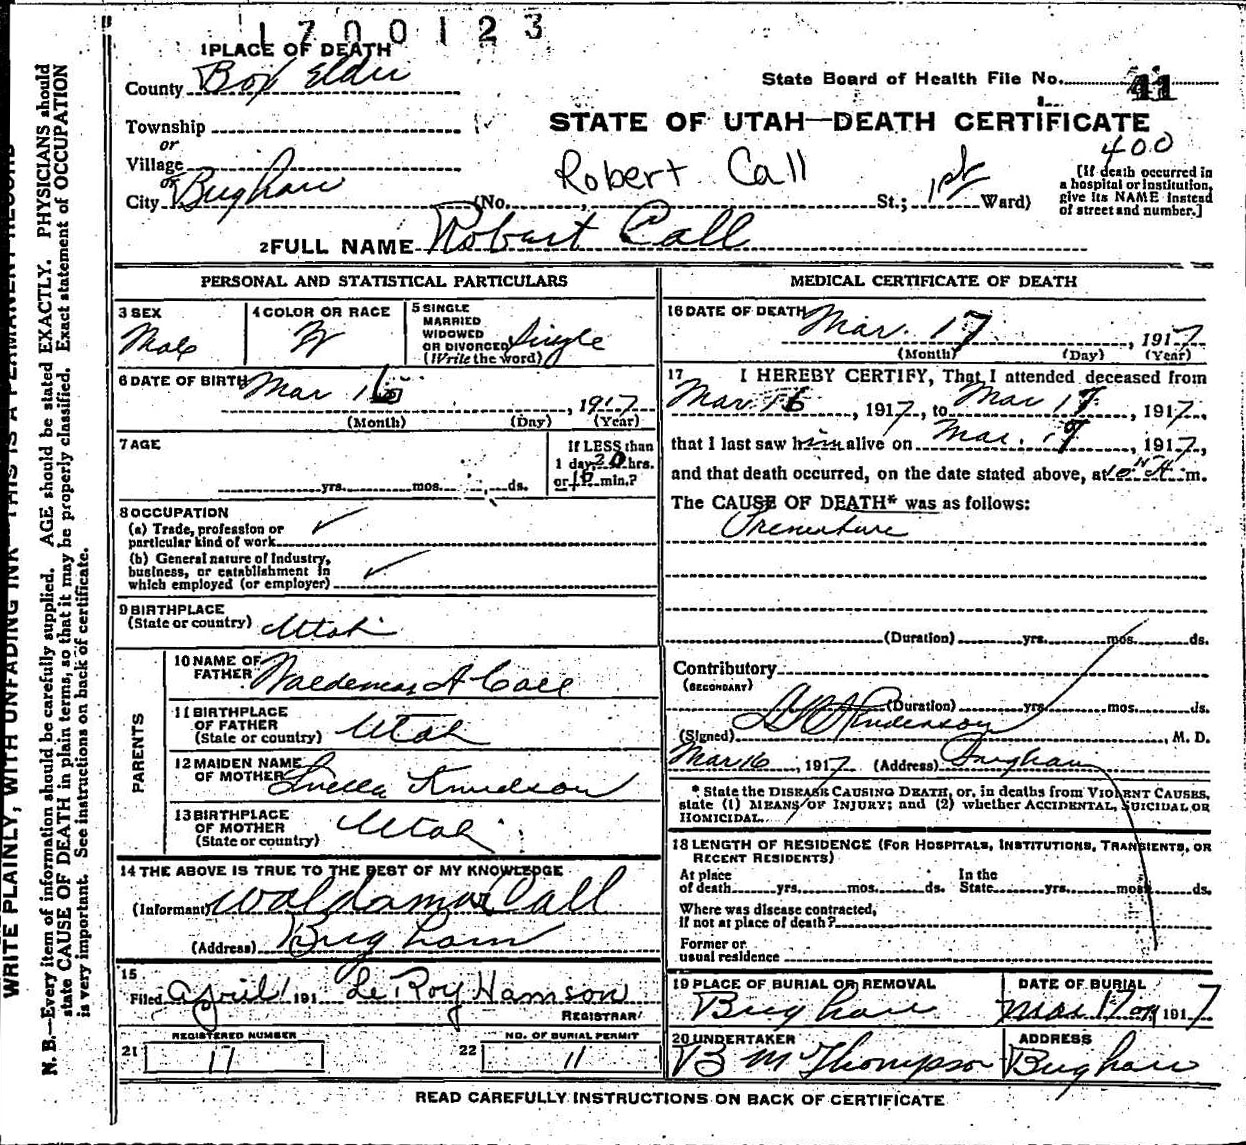 1700123
1 PLACE OF DEATH
County Box Elder
State Board of Health File No. 41
Township
or
Village
or
City Brigham
STATE OF UTAH—DEATH CERTIFICATE
400
Robert Call
(No. St.; 1st Ward)
[If death occurred in
a hospital or institution,
give its NAME instead
of street and number.]
2 FULL NAME Robert Call
PERSONAL AND STATISTICAL PARTICULARS
3 SEX
Male
4 COLOR OR RACE
W
5 SINGLE
MARRIED
WIDOWED
OR DIVORCED
(Write the word)
Single
6 DATE OF BIRTH Mar 16, 1917
(Month) (Day) (Year)
7 AGE
yrs. mos. ds.
If LESS than
1 day, 20 hrs.
or 10 min.?
8 OCCUPATION
(a) Trade, profession or
particular kind of work
(b) General nature of Industry,
business, or establishment in
which employed (or employer)
9 BIRTHPLACE
(State or country) Utah
PARENTS
10 NAME OF
FATHER Waldemar A Call
11 BIRTHPLACE
OF FATHER
(State or country) Utah
12 MAIDEN NAME
OF MOTHER Luella Knudson
13 BIRTHPLACE
OF MOTHER
(State or country) Utah
14 THE ABOVE IS TRUE TO THE BEST OF MY KNOWLEDGE
(Informant) Waldamar Call
(Address) Brigham
15
Filed April 1 191 Le Roy Hamson
REGISTRAR
REGISTERED NUMBER
21 17
NO. OF BURIAL PERMIT
22 11
MEDICAL CERTIFICATE OF DEATH
16 DATE OF DEATH Mar. 17, 1917
(Month) (Day) (Year)
17 I HEREBY CERTIFY, That I attended deceased from
Mar 16, 1917, to Mar 17, 1917,
that I last saw him alive on Mar. 17, 1917,
and that death occurred, on the date stated above, at 10 A m.
The CAUSE OF DEATH* was as follows:
Premature
(Duration) yrs. mos. ds.
Contributory
(SECONDARY)
(Duration) yrs. mos. ds.
(Signed) Anderson, M. D.
Mar 16, 1917 (Address) Brigham
* State the DISEASE CAUSING DEATH, or, in deaths from VIOLENT CAUSES,
state (1) MEANS OF INJURY; and (2) whether ACCIDENTAL, SUICIDAL OR
HOMICIDAL.
18 LENGTH OF RESIDENCE (FOR HOSPITALS, INSTITUTIONS, TRANSIENTS, OR
RECENT RESIDENTS)
At place
of death yrs. mos. ds.
In the
State yrs. mos. ds.
Where was disease contracted,
if not at place of death?
Former or
usual residence
19 PLACE OF BURIAL OR REMOVAL
Brigham
DATE OF BURIAL
Mar 17 1917
20 UNDERTAKER
B M Thompson
ADDRESS
Brigham
READ CAREFULLY INSTRUCTIONS ON BACK OF CERTIFICATE
WRITE PLAINLY, WITH UNFADING INK—THIS IS A PERMANENT RECORD
N. B.—Every item of information should be carefully supplied. AGE should be stated EXACTLY. PHYSICIANS should
state CAUSE OF DEATH in plain terms, so that it may be properly classified. Exact statement of OCCUPATION
is very important. See instructions on back of certificate.